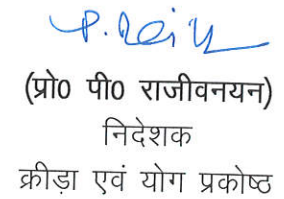 (प्रो0 पी0 राजीवनयन)
निदेशक
क्रीड़ा एवं योग प्रकोष्ठ